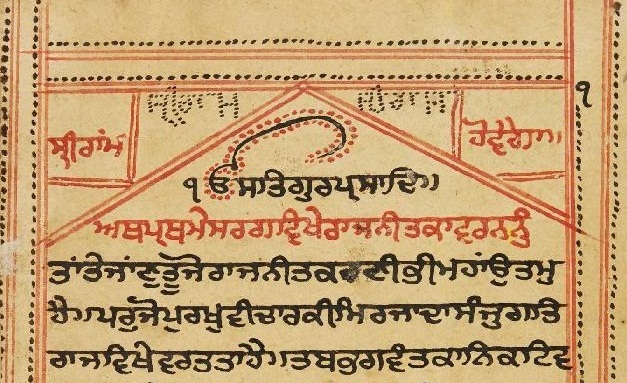 ੧
ਸ੍ਰੀਰਾਂਮ
੧ਓ ਸਤਿਗੁਰਪ੍ਰਸਾਦਿ॥
ਅਥਪ੍ਰਥਮੇਸਰਗਵਿਖੇਰਾਜਨੀਤਕਾਵਰਨਨੁੰ
ਤਾਂਤੇਜਾਂਣੁਤੂੰਜੋਰਾਜਨੀਤਕਰਣੀਭੀਮਹਾਂਉਤਮੁ
ਹੈ॥ਪਰੁੰਜੋਪੁਰਖੁਵੀਚਾਰਕੀਮਿਰਜਾਦਾਸੰਜੁਗਤਿ
ਰਾਜਵਿਖੇਵਰਤਤਾਹੈ॥ਤਬਭੁਗਵੰਤਕਾਨਿਕਟਿਵ